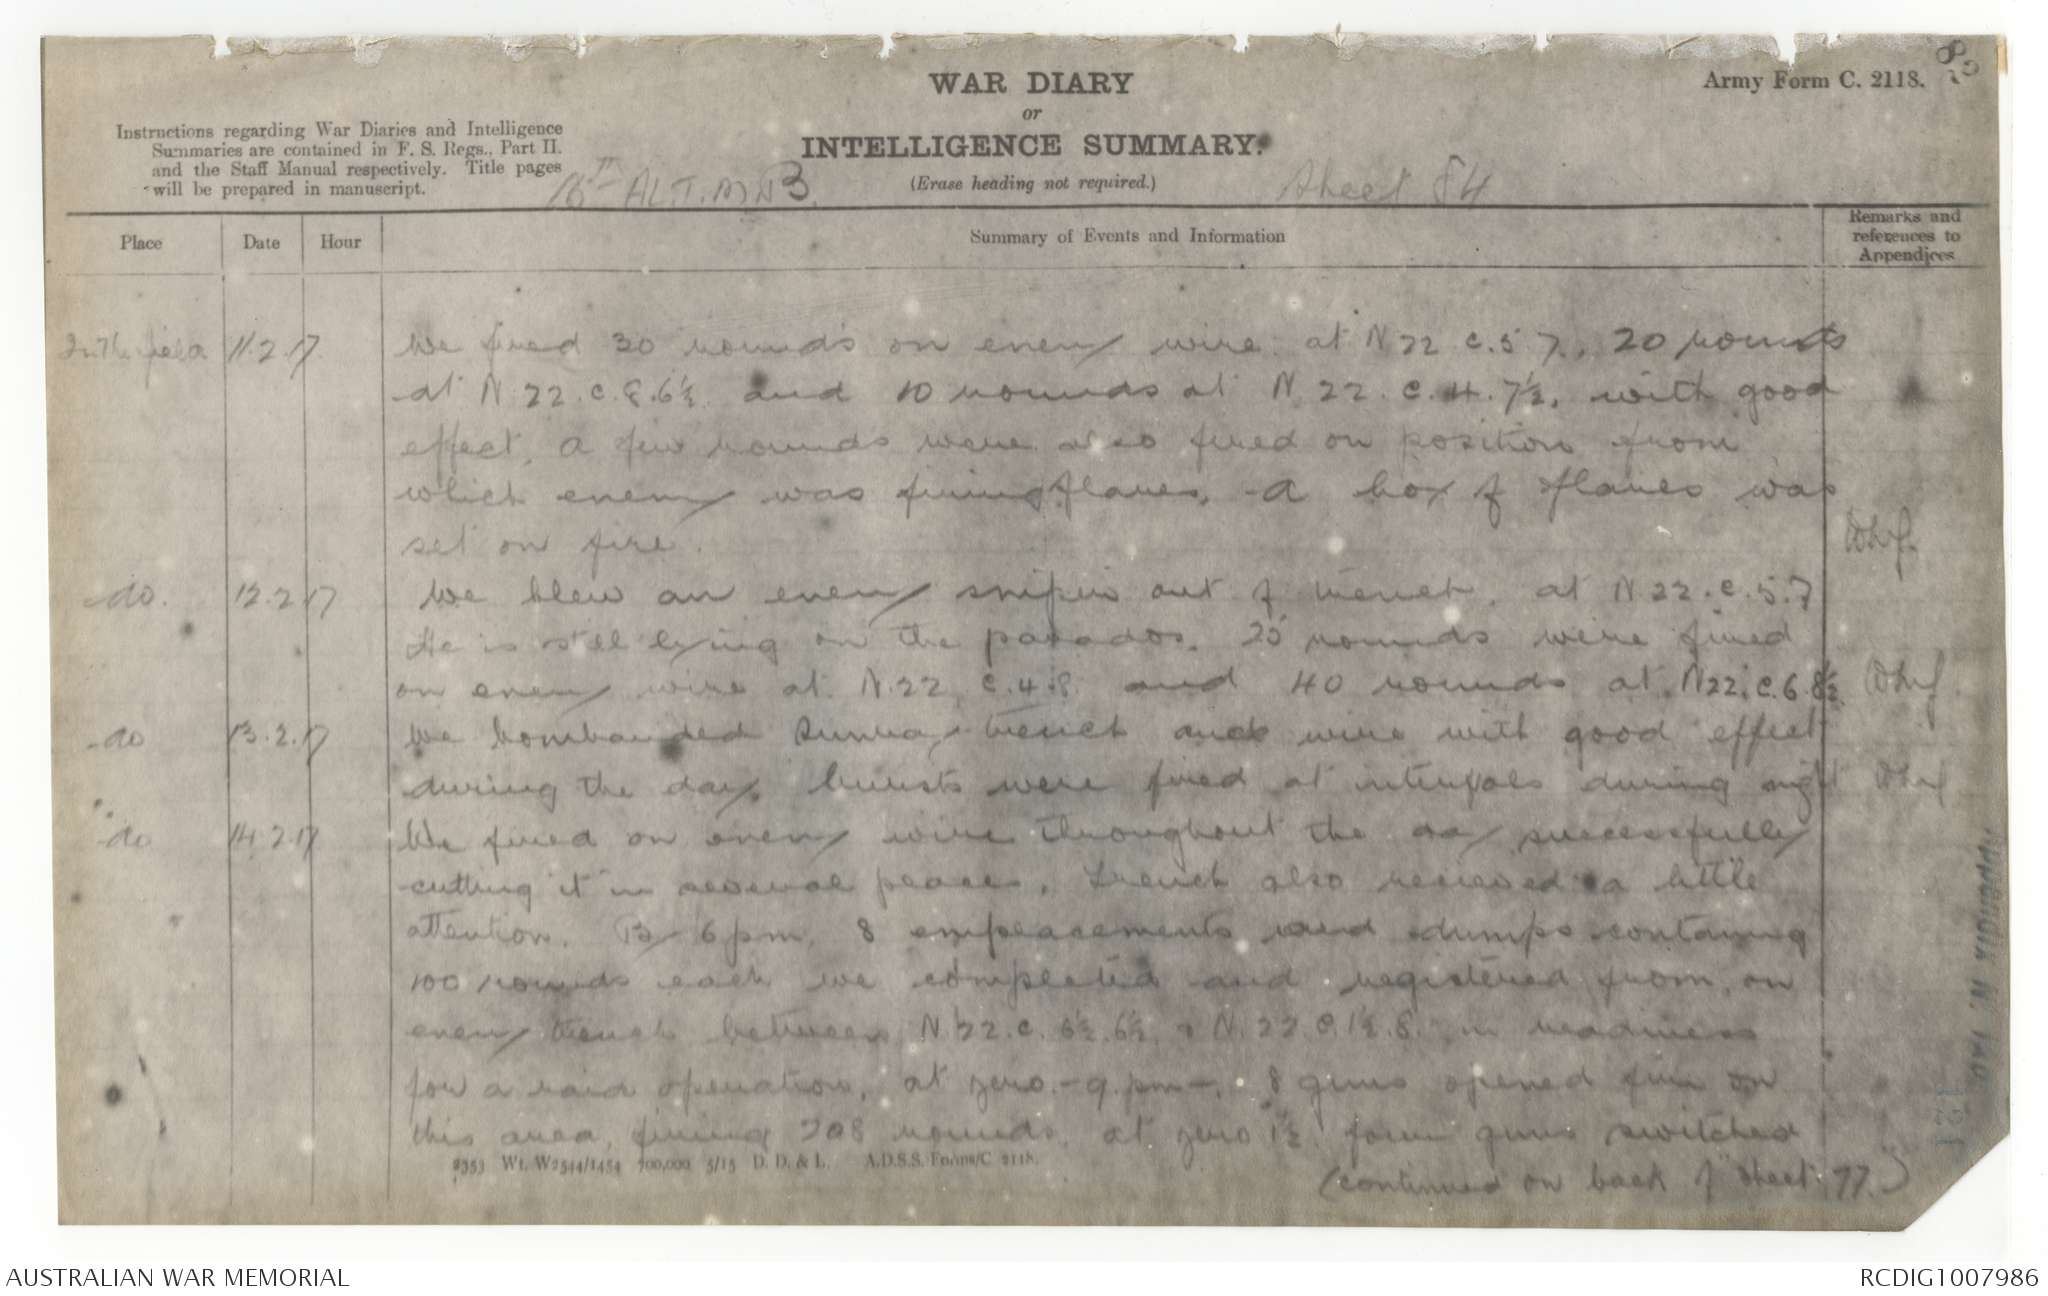 WAR DIARY
or
INTELLIGENCE SUMMARY.
(Erase heading not required.)
Army Form C. 2118.
Instructions regarding War Diaries and Intelligence
Summaries are contained in F. S. Regs., Part II.
and the Staff Manual respectively. Title pages
will be prepared in manuscript.
Sheet 84
Place Date Hour Summary of Events and Information Remarks and references to Appendices
In the field 11.2.17 We fired 30 rounds on enemy wire at N 22 c.5.7, 20 rounds
at N.22.c.8.6½ and 10 rounds at N.22.c.4.7½, with good
effect. A few rounds were also fired on position from
which enemy was firing flares. A box of flares was
set on fire.
-do. 12.2.17 We blew an enemy sniper out of trench, at N.22.c.5.7
He is still lying on the parados. 25 rounds were fired
on enemy wire at N.22.c.4.8. and 40 rounds at N22.c.6.8½
-do 13.2.17 We bombarded trench and wire with good effect
during the day. bursts were fired at intervals during night
-do 14.2.17 We fired on enemy wire throughout the day successfully
cutting it in several places. Trench also recieved a little
attention. By 6 pm, 8 emplacements and dumps containing
100 rounds each we completed and registered from, on
enemy trench between N.22.c.6½.6½ & N.22.C.1½.8. in readiness
for a raid operation, at zero -9.pm-. 8 guns opened fire on
this area, firing 208 rounds. at zero 1½ four guns switched
(continued on back of "sheet 77.")
2353 Wt. W2544/1454 700,000 5/15 D. D. & L. A.D.S.S. Forms/C 2118.
AUSTRALIAN WAR MEMORIAL
RCDIG1007986